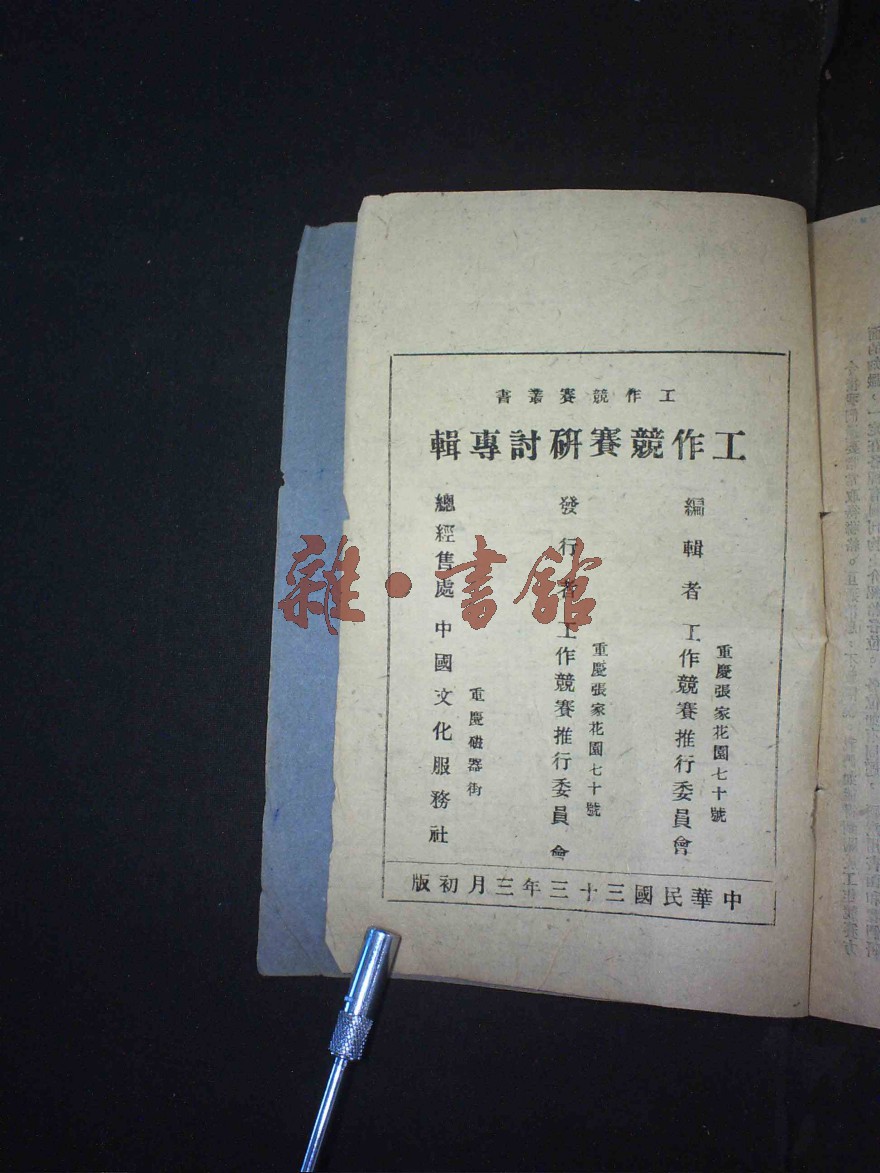 工作競賽叢書
工作競賽研討專輯
編輯者 工作競賽推行委員會
重慶張家花園七十號
發行者 工作競賽推行委員會
重慶張家花園七十號
總經售處 中國文化服務社
重慶磁器街
中華民國三十三年三月初版
雜·書館